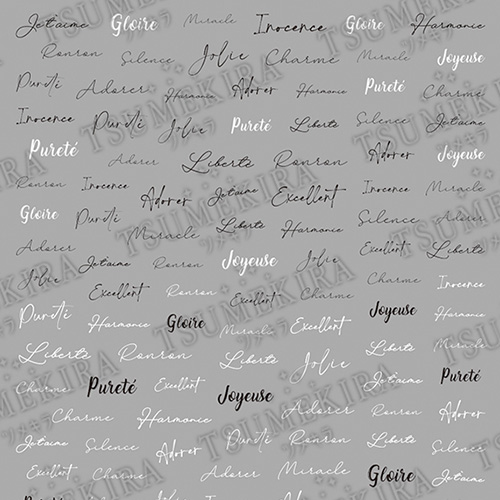 Jet'aime Gloire Miracle Inocence Gloire Harmonie
Ronron Silence Jolie Charme Miracle Joyeuse
Pureté Adorer Harmonie Adorer Harmonie Pureté Charme
Inocence Pureté Jolie Pureté Silence Charme Jet'aime
Pureté Adorer Liberté Ronron Adorer Joyeuse
Ronron Inocence Adorer Jet'aime Excellent Inocence Miracle
Gloire Pureté Miracle Liberté Harmonie Silence Adorer
Adorer Jet'aime Ronron Joyeuse Jolie Excellent Liberté
Jolie Excellent Ronron Excellent Charme Charme Inocence
Pureté Harmonie Gloire Miracle Excellent Joyeuse Harmonie
Liberté Ronron Liberté Jolie Liberté Miracle
Charme Pureté Excellent Joyeuse Jet'aime Pureté
Charme Harmonie Adorer Ronron Adorer
Jet'aime Silence Adorer Liberté Charme Liberté Silence
Excellent Charme Adorer Miracle Gloire Jolie
TSUMEKIRA
ツメキラ